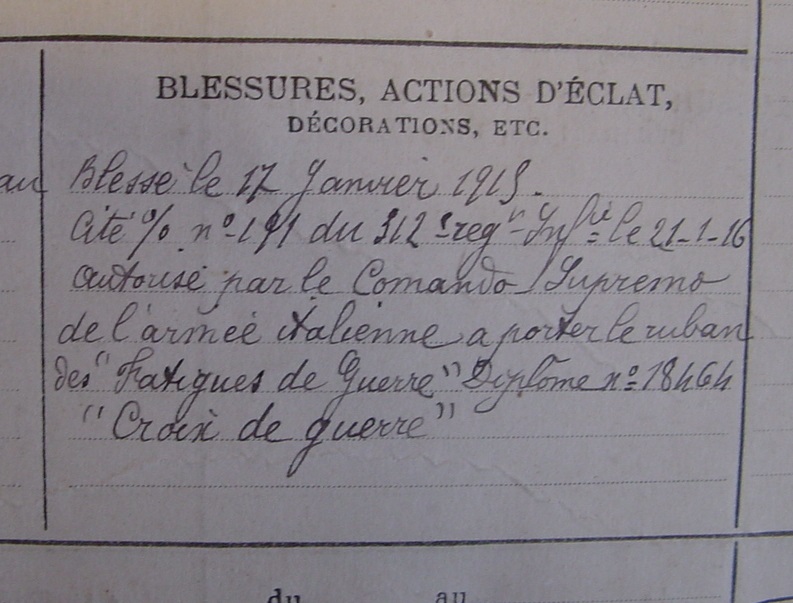 BLESSURES, ACTIONS D'ÉCLAT,
DÉCORATIONS, ETC.
au
Blessé le 17 Janvier 1915.
Cité % nº 191 du 312e regt Infie le 21-1-16
autorisé par le Comando Supremo
de l'armée italienne a porter le ruban
des "Fatigues de Guerre" Diplôme nº 18464
"Croix de guerre"
du au